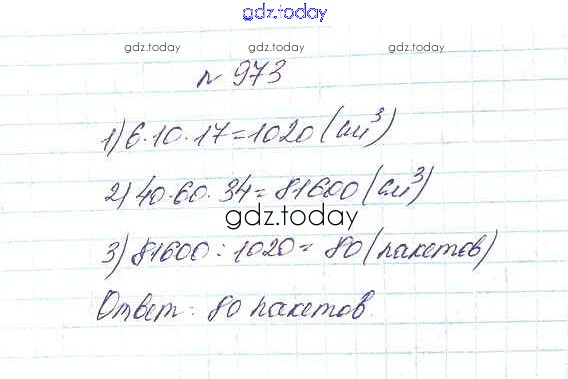 gdz.today
gdz.today gdz.today gdz.today
№ 973
1) 6·10·17=1020 (см³)
2) 40·60·34=81600 (см³)
gdz.today
3) 81600:1020=80 (пакетов)
Ответ: 80 пакетов.